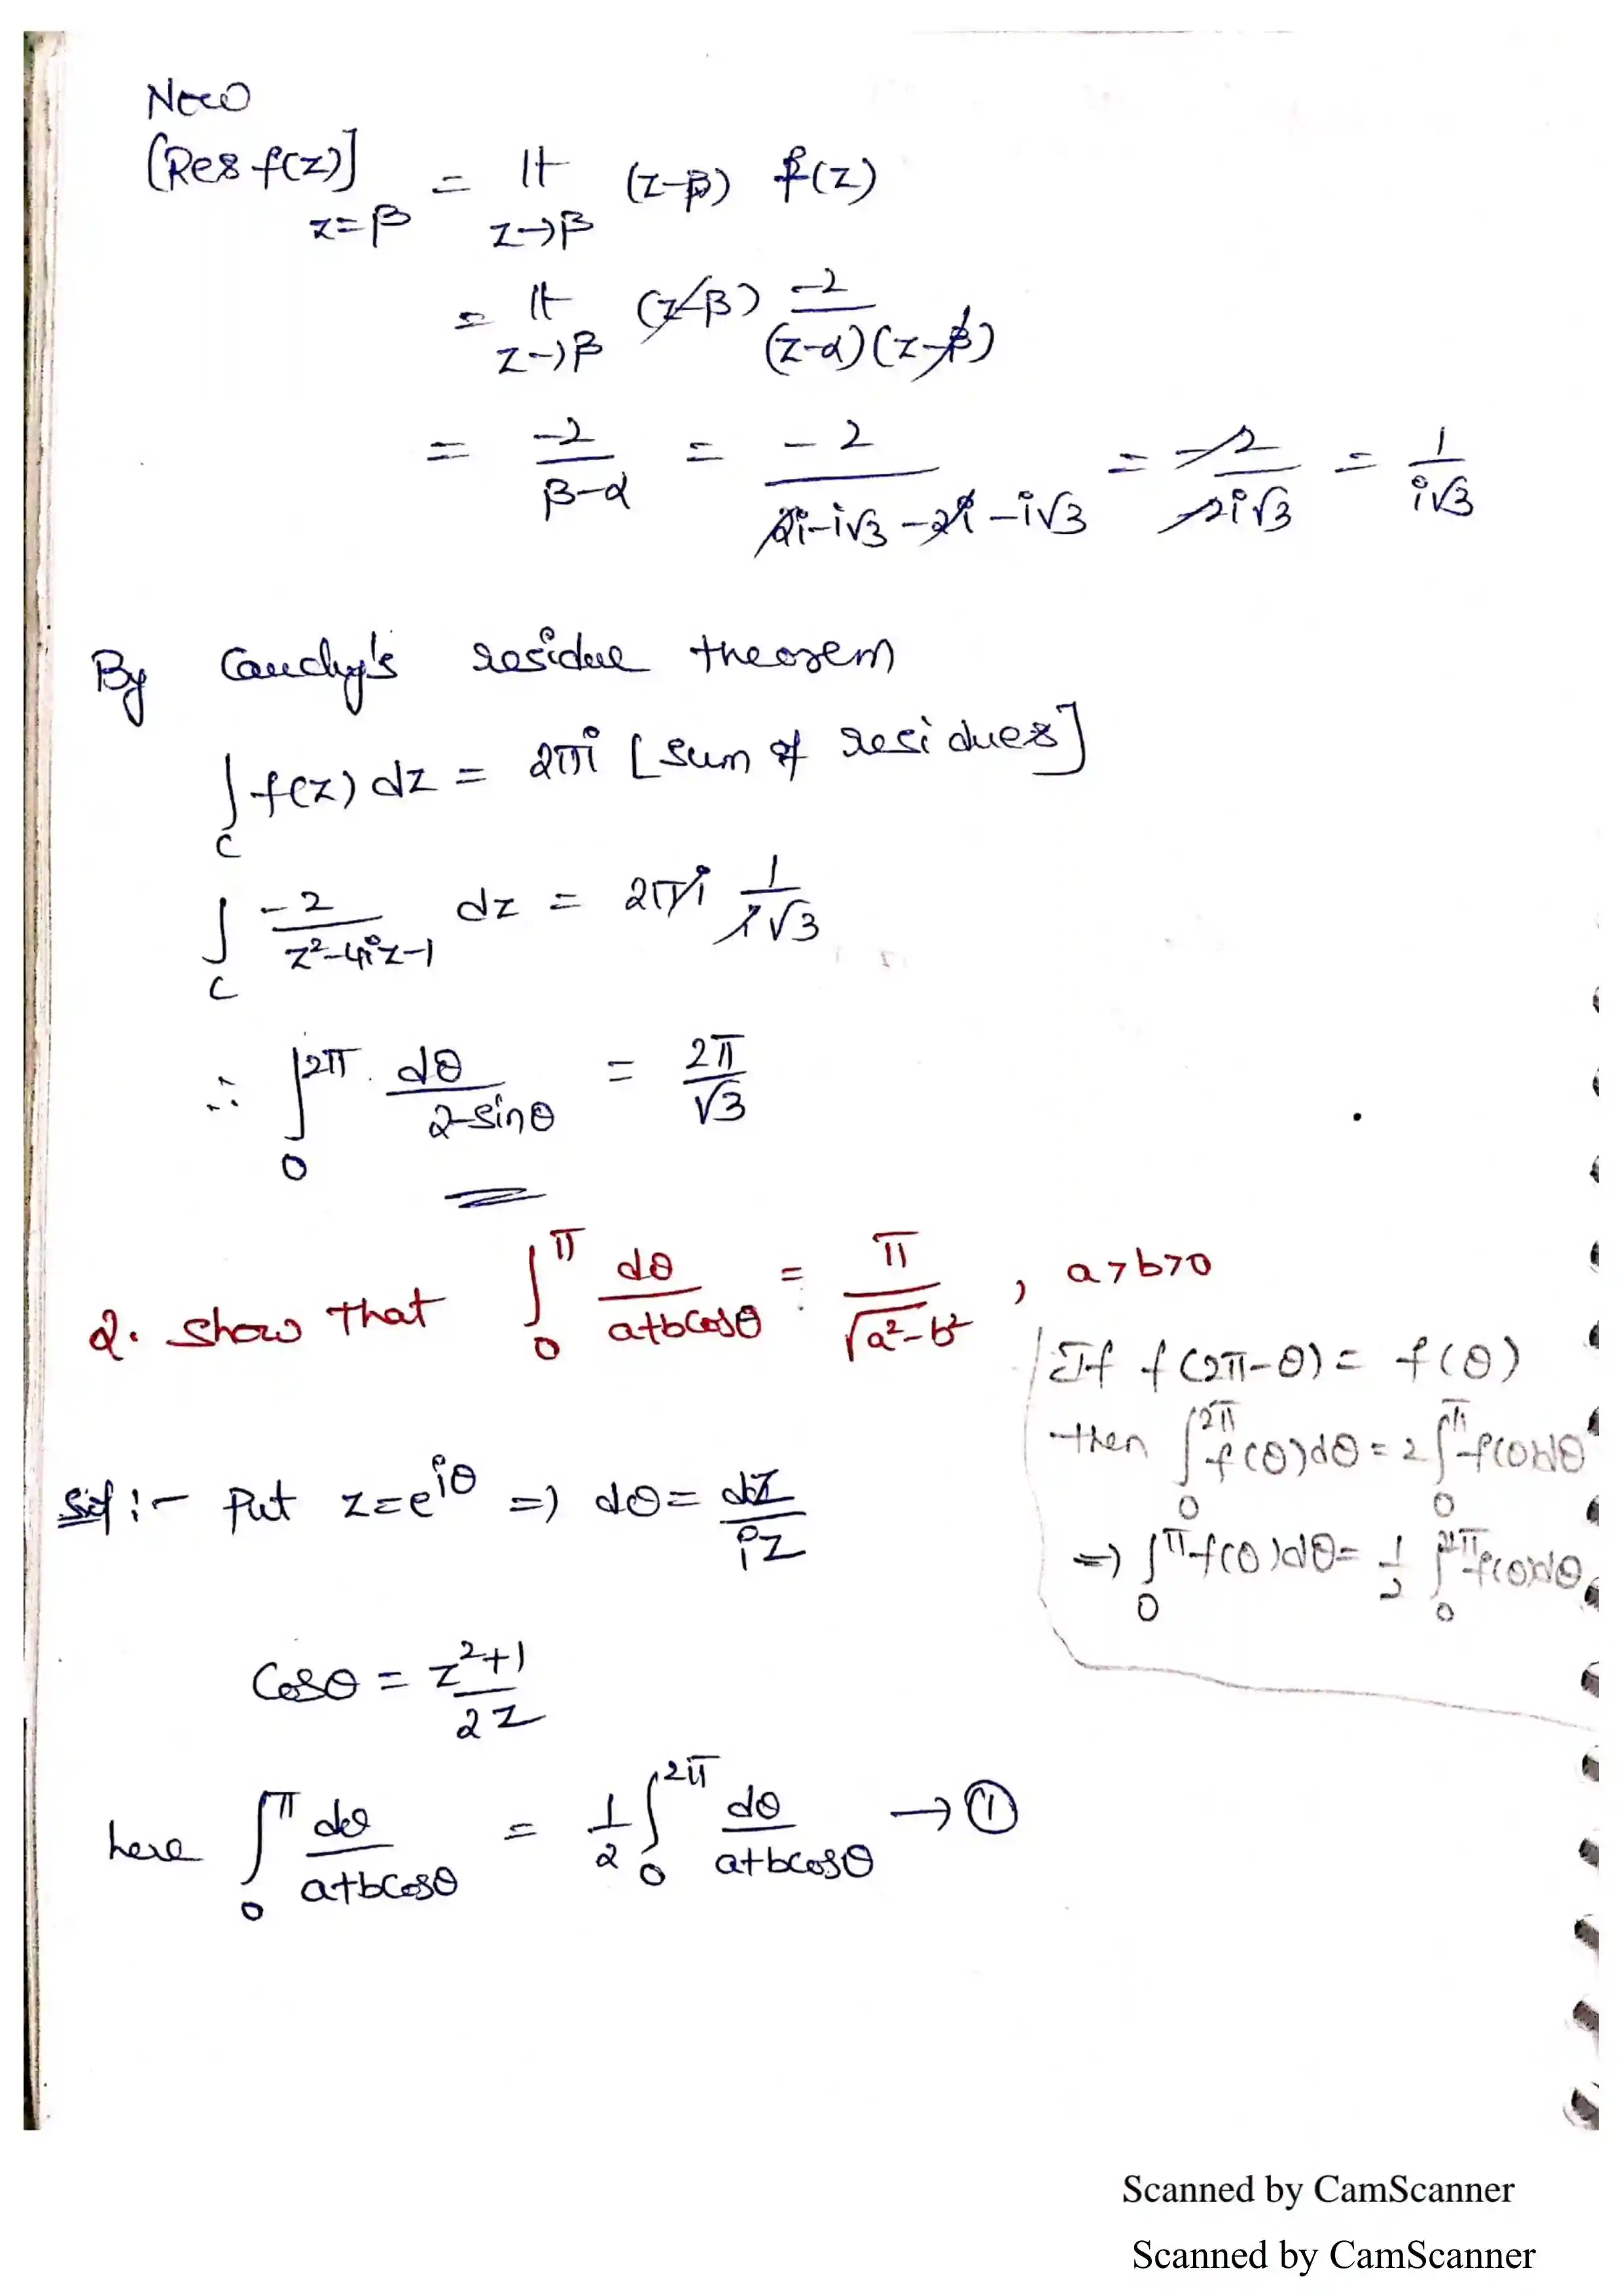 Now
[Res f(z)] z=β = lt z→β (z-β) f(z)
= lt z→β (z-β) -2/(z-α)(z-β)
= -2/β-α = -2/2i-i√3-2i-i√3 = -2/-2i√3 = 1/i√3
By Cauchy's residue theorem
∫_C f(z) dz = 2πi [sum of residues]
∫_C -2/z²-4iz-1 dz = 2πi 1/i√3
∴ ∫_0^2π dθ/2-sinθ = 2π/√3
2. Show that ∫_0^π dθ/a+bcosθ = π/√a²-b² , a>b>0
If f(2π-θ) = f(θ)
then ∫_0^2π f(θ)dθ = 2∫_0^π f(θ)dθ
=> ∫_0^π f(θ)dθ = 1/2 ∫_0^2π f(θ)dθ
Sol :- Put z=e^iθ => dθ = dz/iz
Cosθ = z²+1/2z
here ∫_0^π dθ/a+bcosθ = 1/2 ∫_0^2π dθ/a+bcosθ → ①
Scanned by CamScanner
Scanned by CamScanner